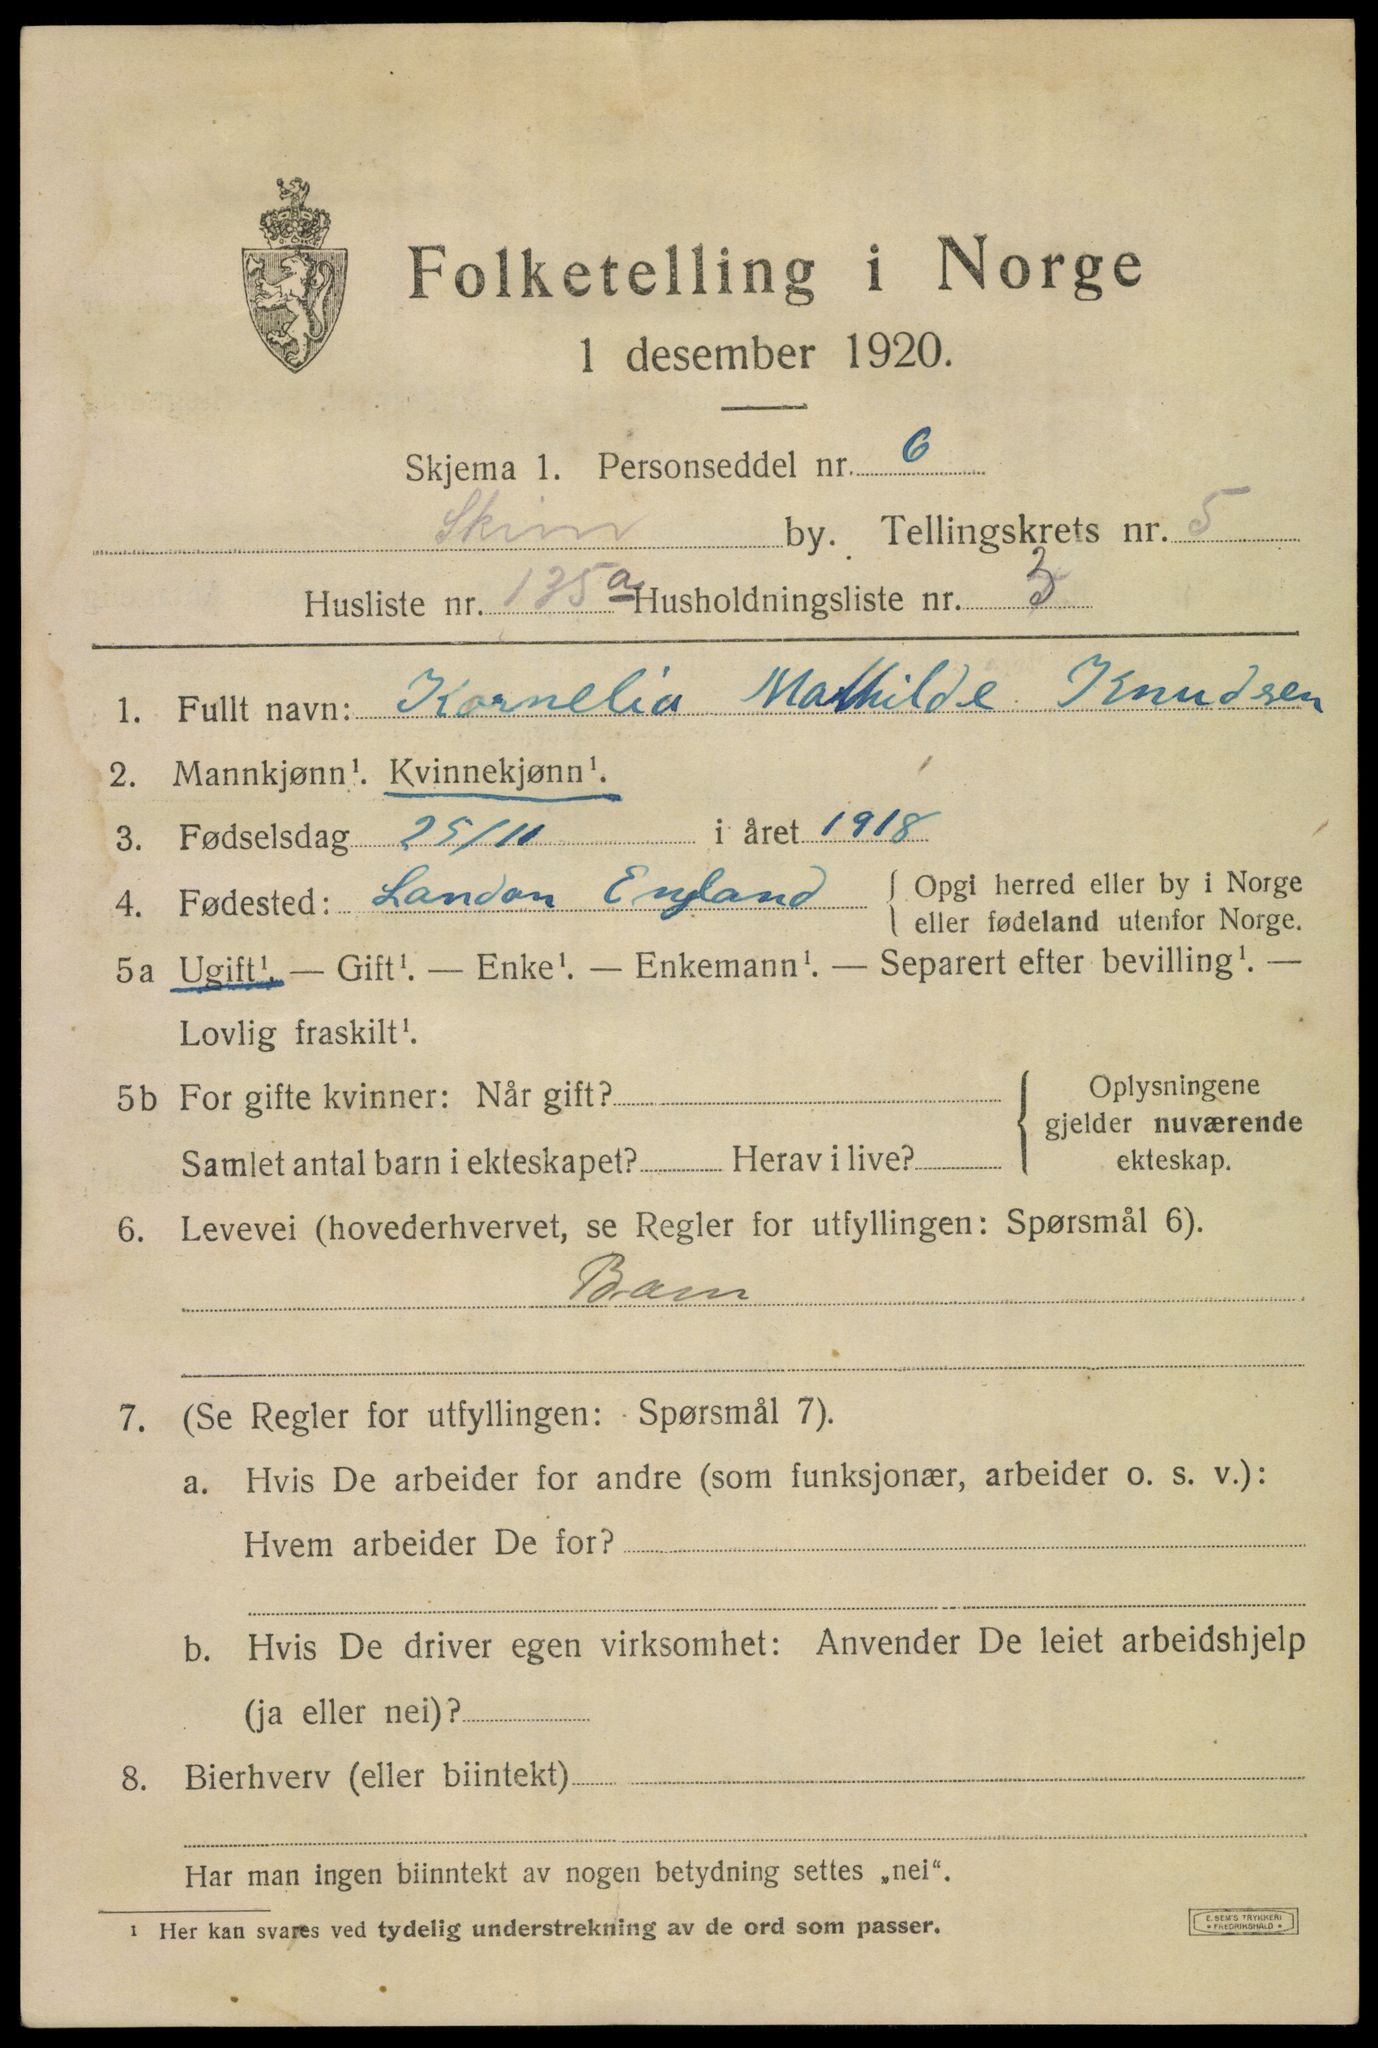 Folketelling i Norge
1 desember 1920.
Skjema 1. Personseddel nr. 6
Skien by. Tellingskrets nr. 5
Husliste nr. 135a Husholdningsliste nr. 3
1. Fullt navn: Kornelia Mathilde Knudsen
2. Mannkjønn¹. Kvinnekjønn¹.
3. Fødselsdag 25/11 i året 1918
4. Fødested: London England { Opgi herred eller by i Norge
eller fødeland utenfor Norge.
5a Ugift¹. — Gift¹. — Enke¹. — Enkemann¹. — Separert efter bevilling¹. —
Lovlig fraskilt¹.
5b For gifte kvinner: Når gift? { Oplysningene
gjelder nuværende
Samlet antal barn i ekteskapet? Herav i live? ekteskap.
6. Levevei (hovederhvervet, se Regler for utfyllingen: Spørsmål 6).
Barn
7. (Se Regler for utfyllingen: Spørsmål 7).
a. Hvis De arbeider for andre (som funksjonær, arbeider o. s. v.):
Hvem arbeider De for?
b. Hvis De driver egen virksomhet: Anvender De leiet arbeidshjelp
(ja eller nei)?
8. Bierhverv (eller biintekt)
Har man ingen biinntekt av nogen betydning settes „nei“.
¹ Her kan svares ved tydelig understrekning av de ord som passer.
E. SEM'S TRYKKERI
* FREDRIKSHALD *